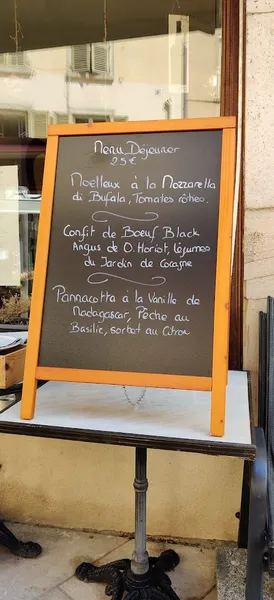 Menu Déjeuner
25€
Moelleux à la Mozzarella
di Bufala, Tomates rôties.
Confit de Boeuf Black
Angus de O. Horiot, légumes
du Jardin de Cocagne
Pannacotta à la Vanille de
Madagascar, Pêche au
Basilic, sorbet au Citron